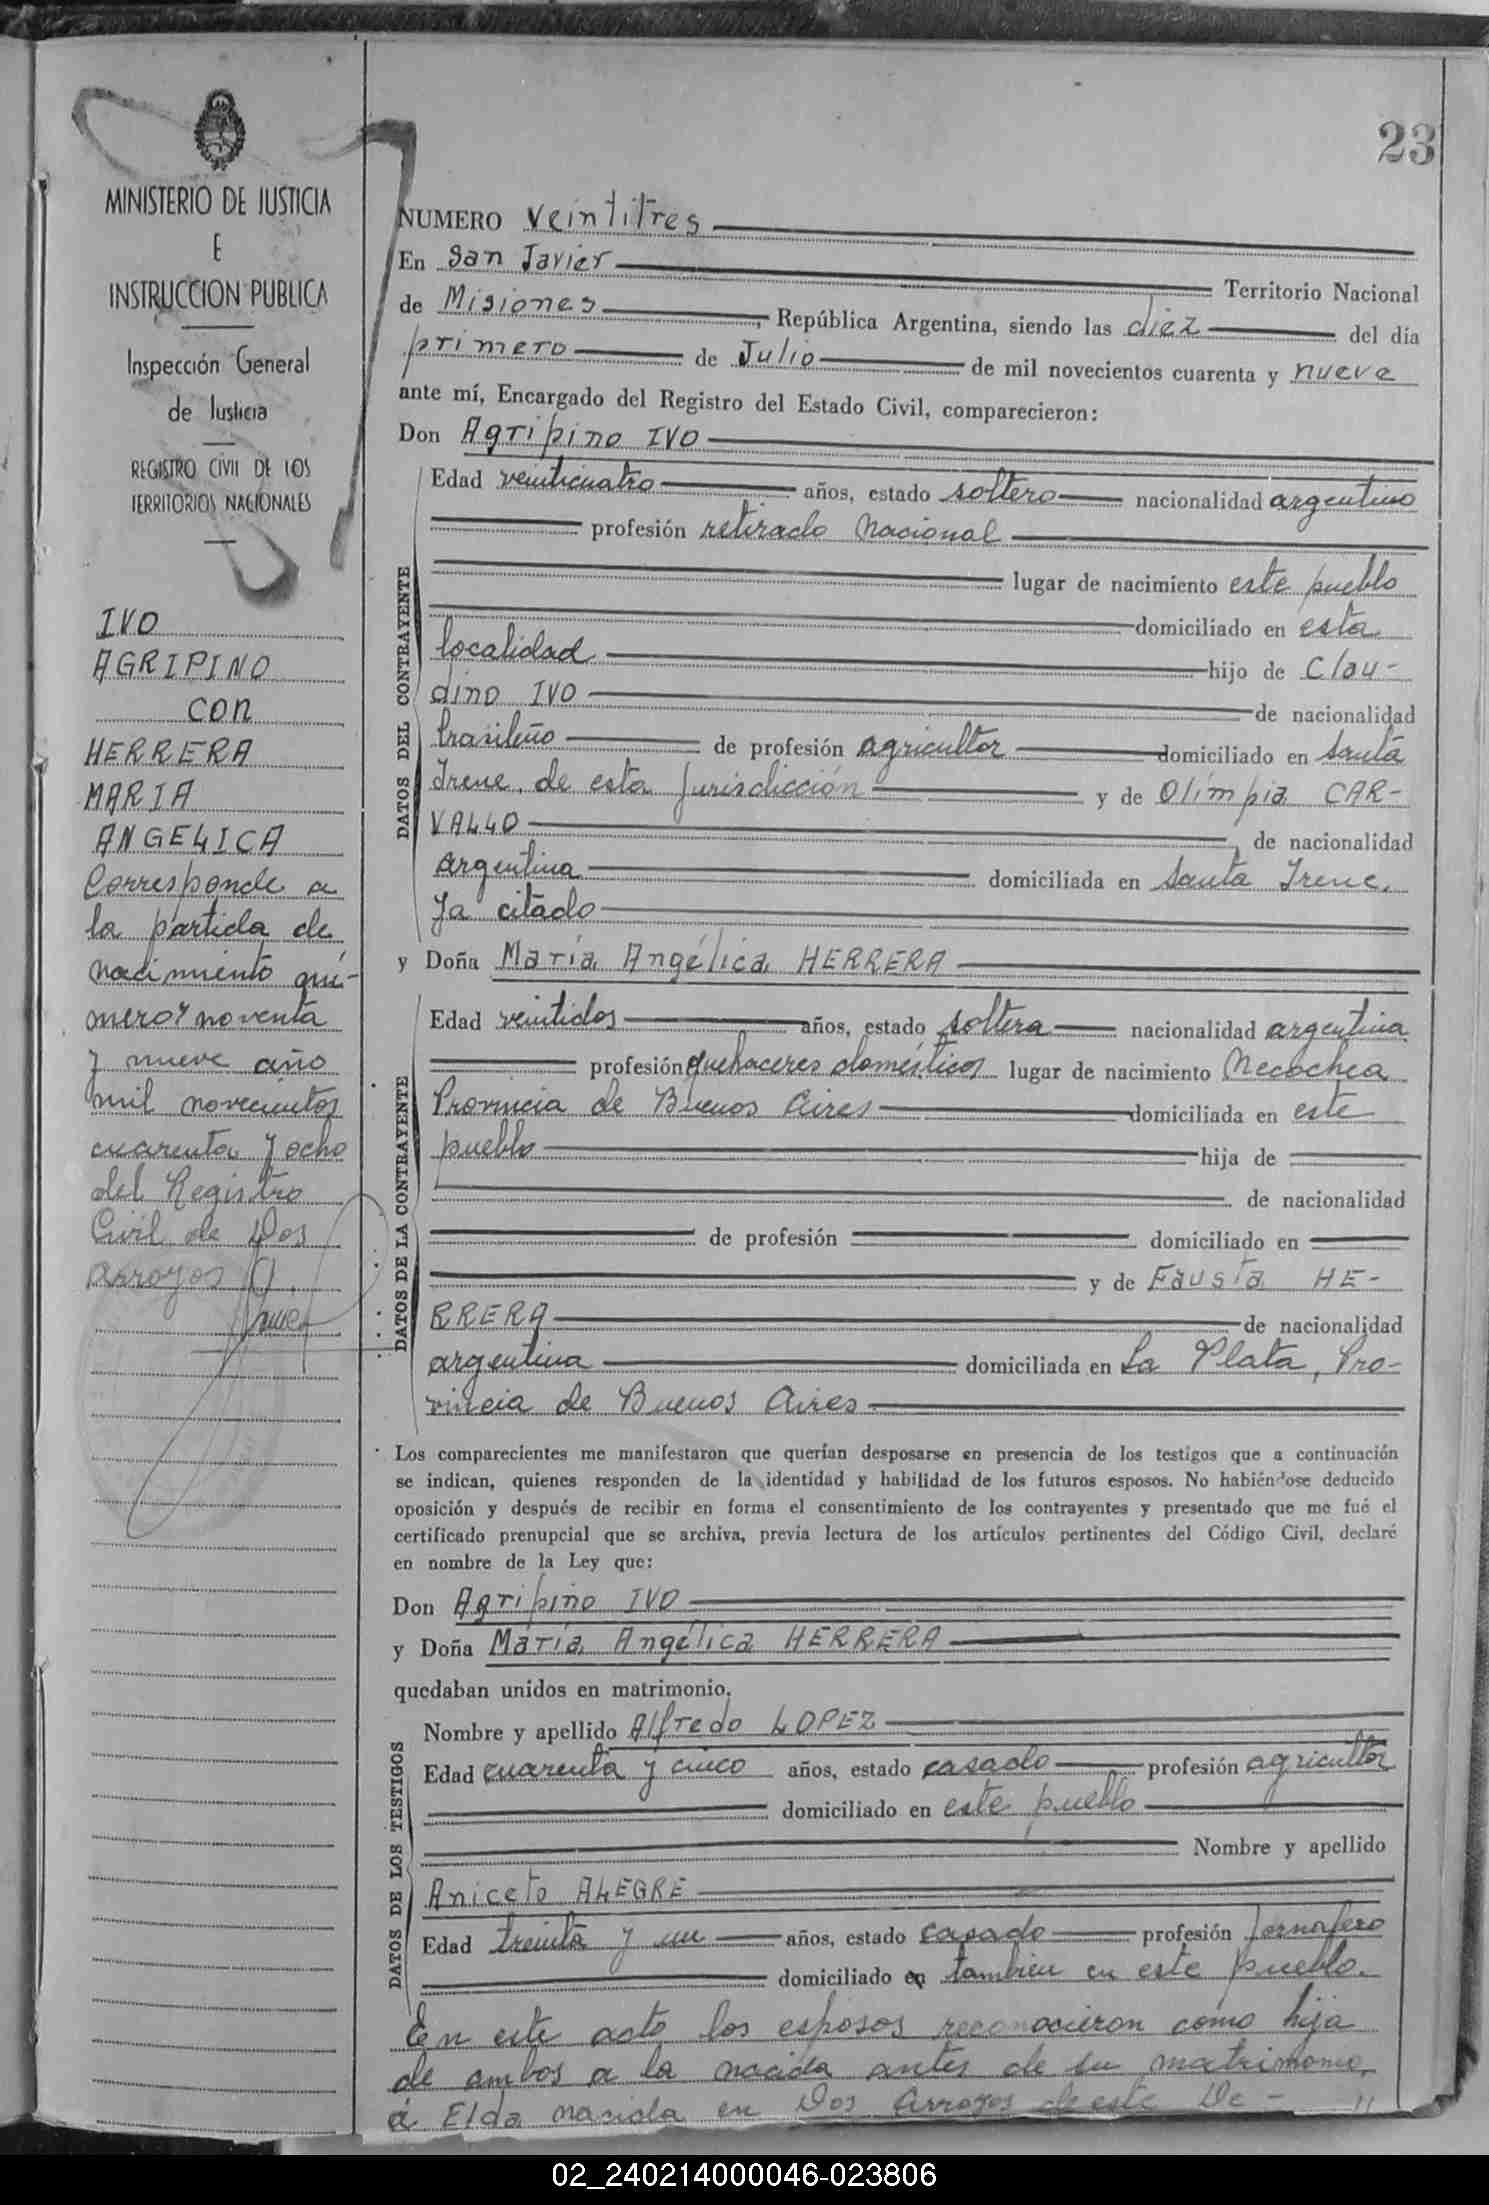 23
MINISTERIO DE JUSTICIA
E
INSTRUCCION PUBLICA
Inspección General
de Justicia
REGISTRO CIVIL DE LOS
TERRITORIOS NACIONALES
IVO
AGRIPINO
CON
HERRERA
MARIA
ANGELICA
Corresponde a
la partida de
nacimiento nú-
mero noventa
y nueve año
mil novecientos
cuarenta y ocho
del Registro
Civil de Dos
Arroyos
NUMERO veintitres
En San Javier Territorio Nacional
de Misiones, República Argentina, siendo las diez del día
primero de Julio de mil novecientos cuarenta y nueve
ante mí, Encargado del Registro del Estado Civil, comparecieron:
Don Agripino IVO
DATOS DEL CONTRAYENTE
Edad veinticuatro años, estado soltero nacionalidad argentino
profesión retirado nacional
lugar de nacimiento este pueblo
domiciliado en esta
localidad hijo de Clau-
dino IVO de nacionalidad
brasileño de profesión agricultor domiciliado en Santa
Irene, de esta jurisdicción y de Olimpia CAR-
VALLO, de nacionalidad
argentina domiciliada en Santa Irene,
ya citado
y Doña María Angélica HERRERA
DATOS DE LA CONTRAYENTE
Edad veintidos años, estado soltera nacionalidad argentina
profesión quehaceres domésticos lugar de nacimiento Necochea
Provincia de Buenos Aires domiciliada en este
pueblo hija de
de nacionalidad
de profesión domiciliado en
y de Fausta HE-
RRERA de nacionalidad
argentina domiciliada en La Plata, Pro-
vincia de Buenos Aires
Los comparecientes me manifestaron que querían desposarse en presencia de los testigos que a continuación
se indican, quienes responden de la identidad y habilidad de los futuros esposos. No habiéndose deducido
oposición y después de recibir en forma el consentimiento de los contrayentes y presentado que me fué el
certificado prenupcial que se archiva, previa lectura de los artículos pertinentes del Código Civil, declaré
en nombre de la Ley que:
Don Agripino IVO
y Doña María Angélica HERRERA
quedaban unidos en matrimonio.
DATOS DE LOS TESTIGOS
Nombre y apellido Alfredo LOPEZ
Edad cuarenta y cinco años, estado casado profesión agricultor
domiciliado en este pueblo
Nombre y apellido
Aniceto ALEGRE
Edad treinta y un años, estado casado profesión jornalero
domiciliado en tambien en este pueblo.
En este acto los esposos reconocieron como hija
de ambos a la nacida antes de su matrimonio,
a Elda nacida en Dos Arroyos de este De-
02_240214000046-023806